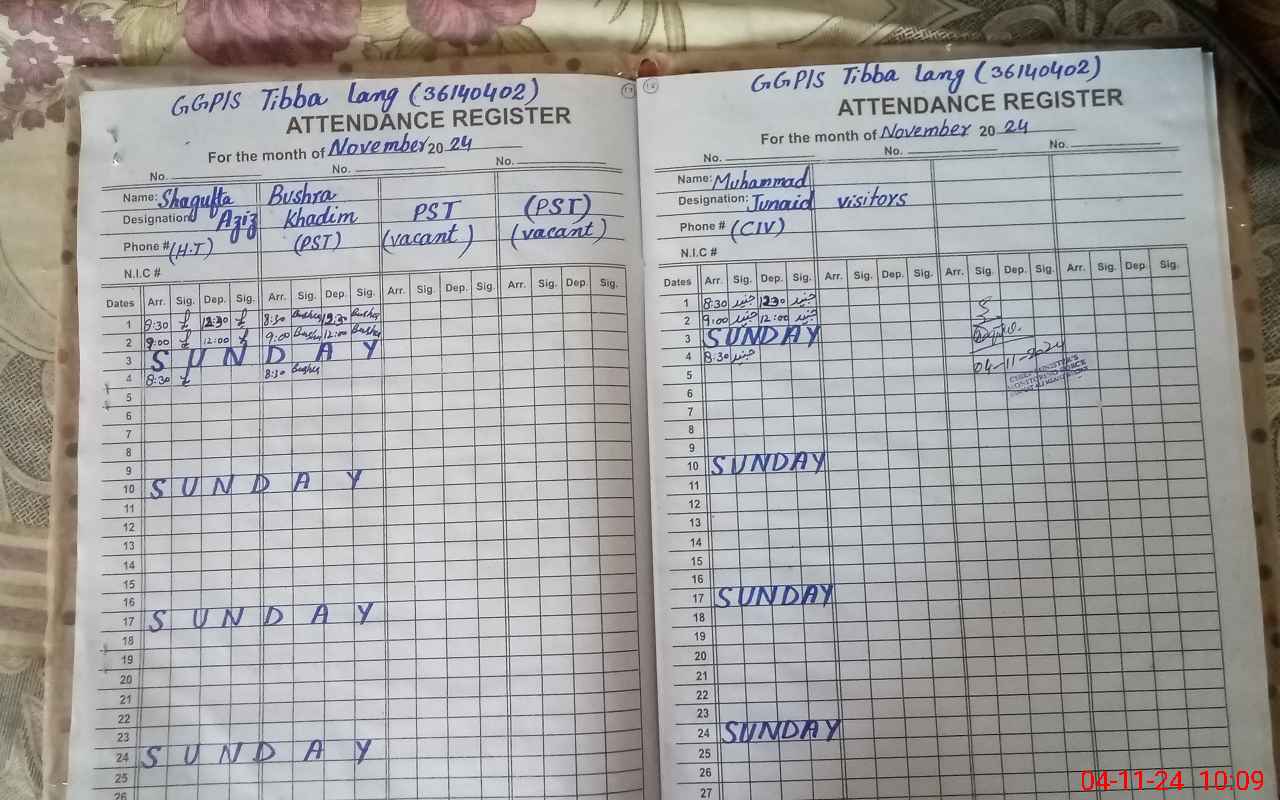 GGPIS Tibba Lang (36140402)
ATTENDANCE REGISTER
For the month of November 20 24
No. No. No.
Name: Shagufta Bushra
Designation: Aziz Khadim PST (PST)
Phone # (H.T) (PST) (vacant) (vacant)
N.I.C #
Dates Arr. Sig. Dep. Sig. Arr. Sig. Dep. Sig. Arr. Sig. Dep. Sig. Arr. Sig. Dep. Sig.
1 8:30 12:30 8:30 Bushra 12:30 Bushra
2 9:00 12:00 9:00 Bushra 12:00 Bushra
3 SUNDAY
4 8:30 8:30 Bushra
5
6
7
8
9
10 SUNDAY
11
12
13
14
15
16
17 SUNDAY
18
19
20
21
22
23
24 SUNDAY
25
26
GGPIS Tibba Lang (36140402)
ATTENDANCE REGISTER
For the month of November 20 24
No. No. No.
Name: Muhammad
Designation: Junaid visitors
Phone # (CIV)
N.I.C #
Dates Arr. Sig. Dep. Sig. Arr. Sig. Dep. Sig. Arr. Sig. Dep. Sig. Arr. Sig. Dep. Sig.
1 8:30 جنید 12:30 جنید
2 9:00 جنید 12:00 جنید
3 SUNDAY
4 8:30 جنید
04-11-2024
5
CHIEF MINISTER'S
MONITORING FORCE
6
7
8
9
10 SUNDAY
11
12
13
14
15
16
17 SUNDAY
18
19
20
21
22
23
24 SUNDAY
25
26
27
04-11-24 10:09